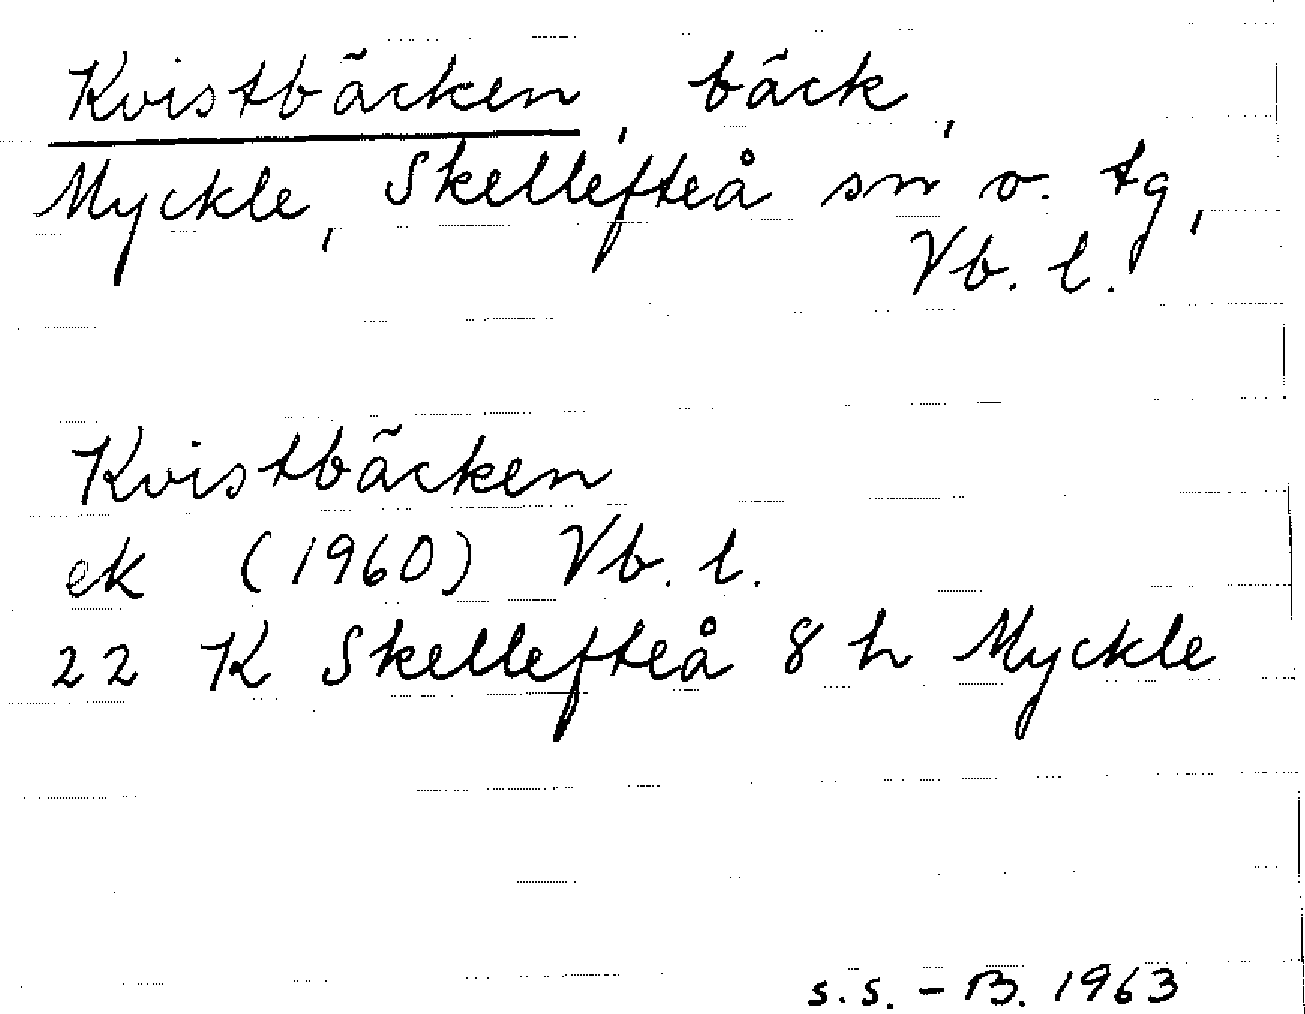 Kvistbäcken, bäck,
Myckle, Skellefteå sn o. tg,
Vb. l.
Kvistbäcken
ek (1960) Vb. l.
22 K Skellefteå 8 h Myckle
s.s. - B. 1963